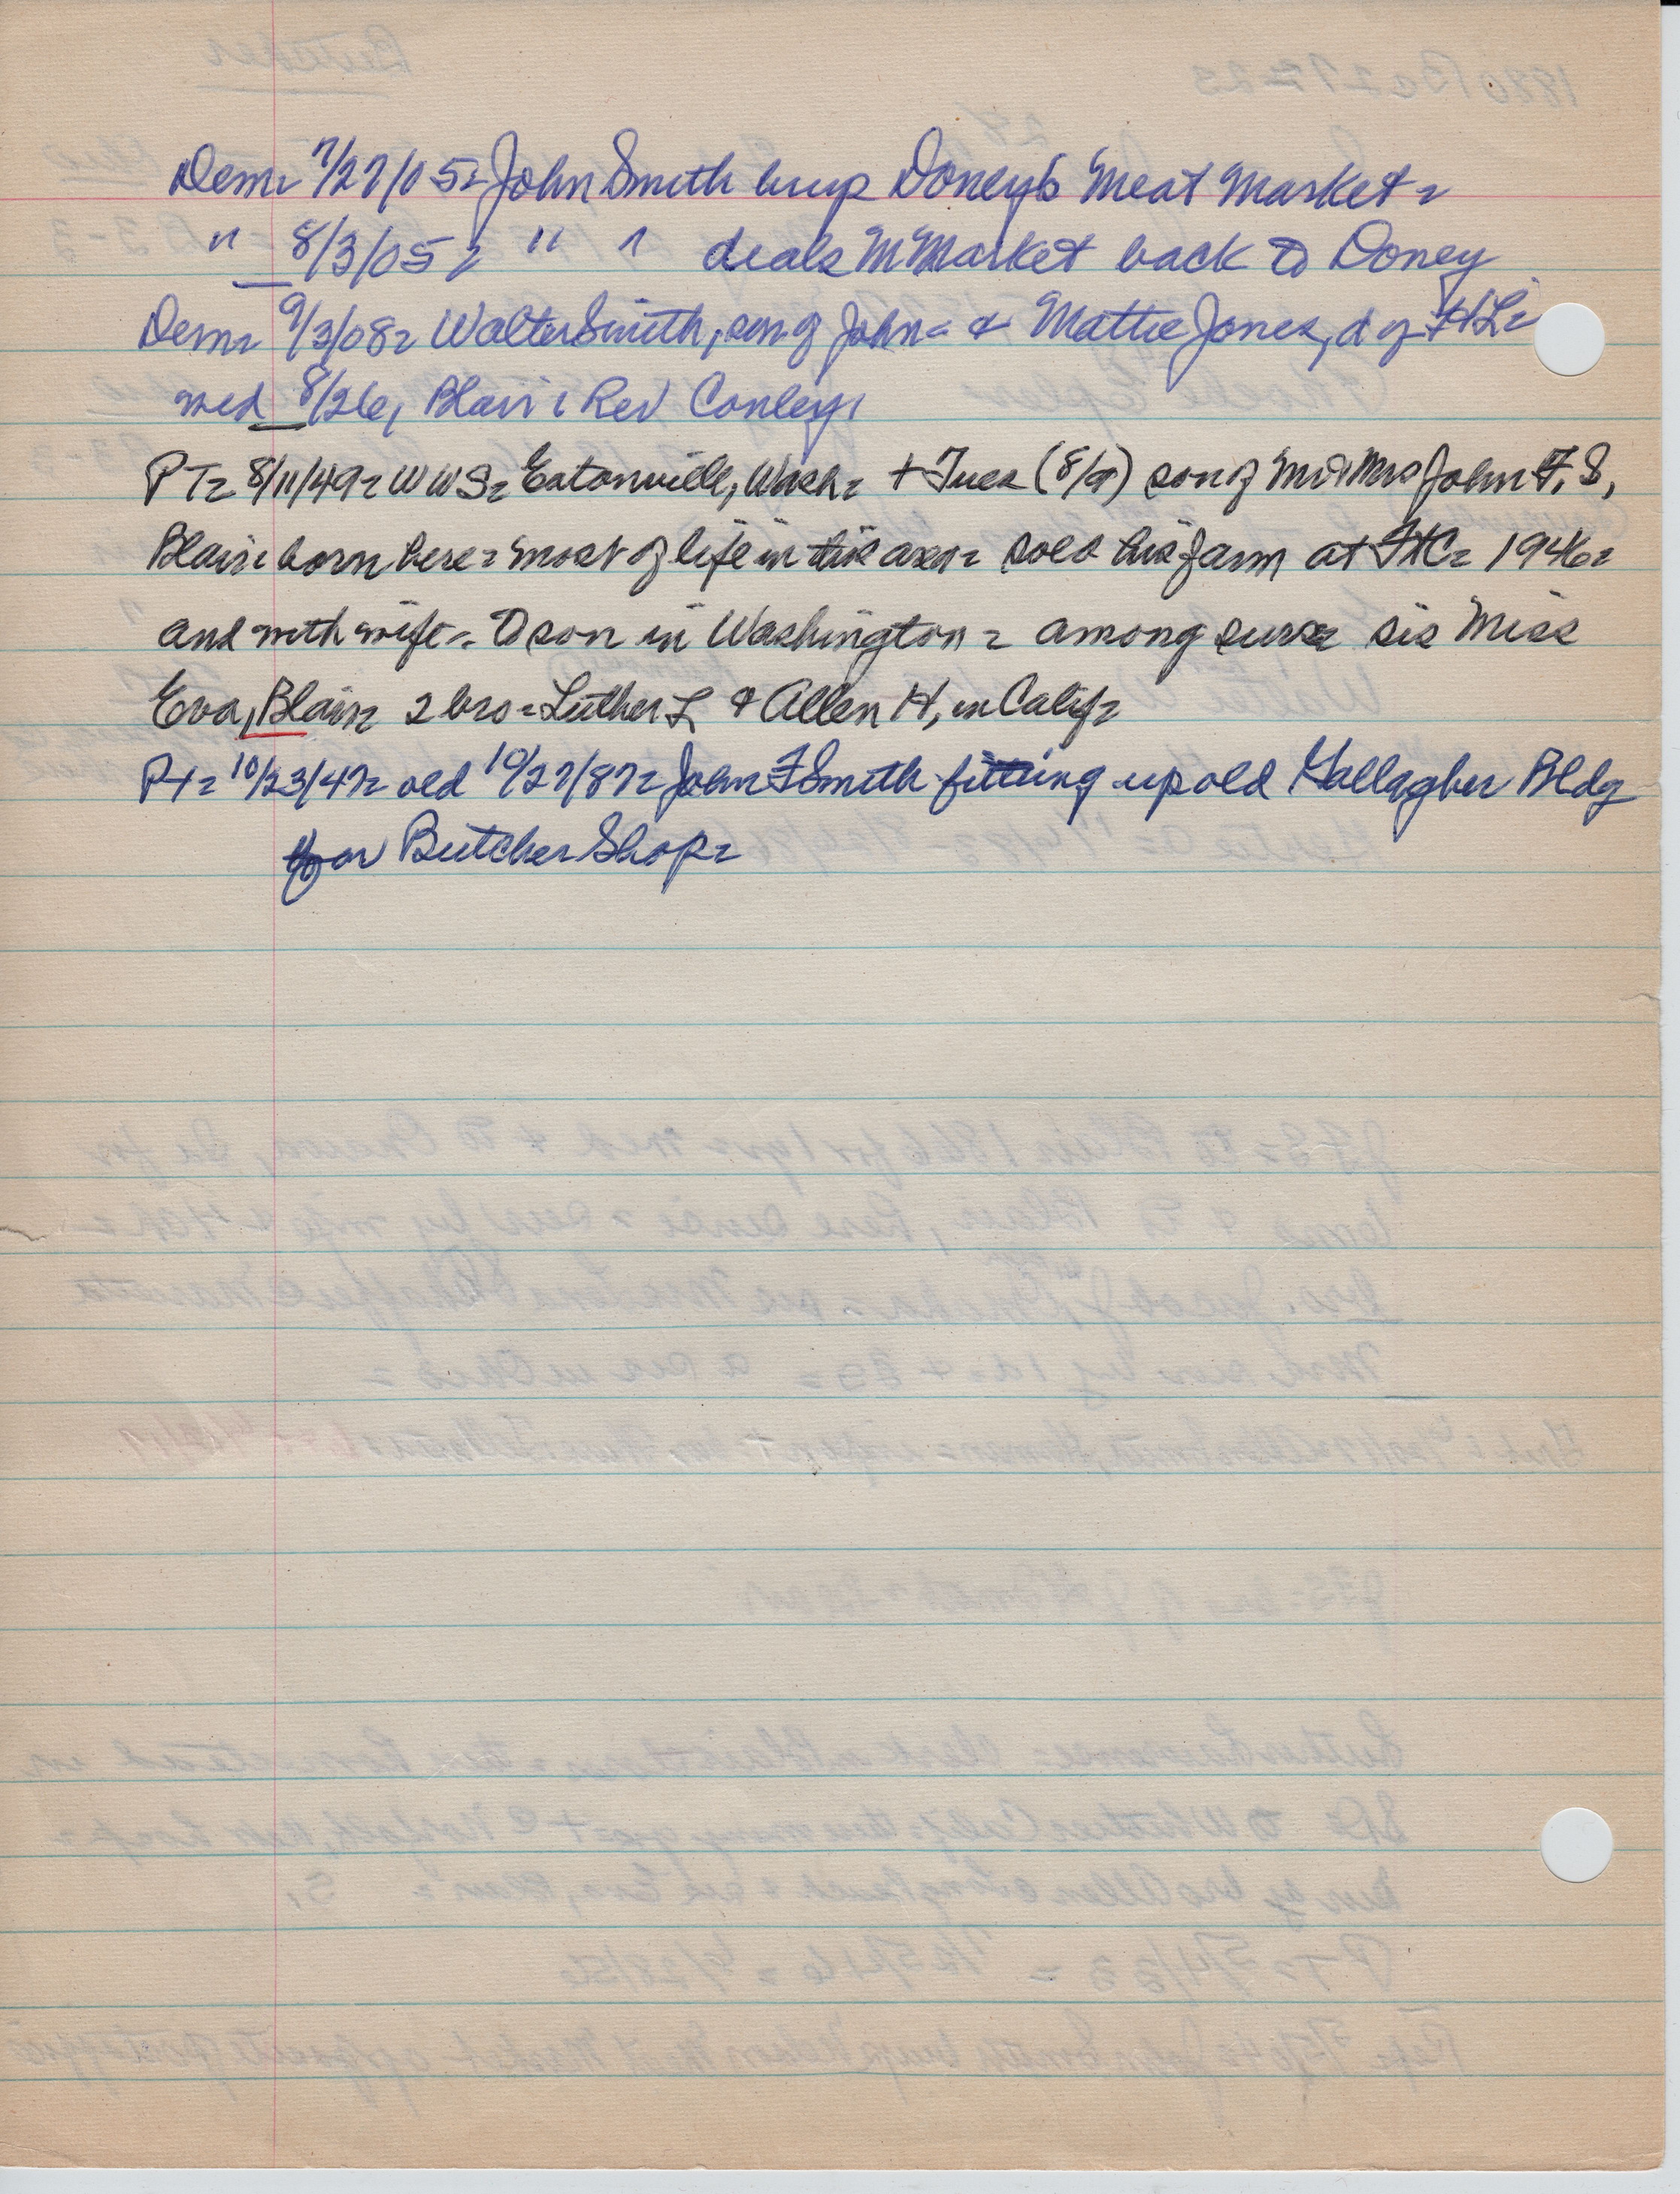 Dem= 7/27/05= John Smith buys Doney's Meat Market=
" 8/3/05= " " deals M Market back to Doney
Dem= 9/3/08= Walter Smith, son of John= & Mattie Jones, d of H L=
med 8/26, Blair= Rev Conley,
PT= 8/11/49= WWS= Eatonville, Wash= + Tues (8/9) son of Mr & Mrs John F. S,
Blair= born here= most of life in this area= sold his farm at FtC= 1946=
and with wife= to son in Washington= among surv= sis Miss
Eva, Blair= 2 bro= Luther L & Allen H, in Calif=
Pt= 10/23/47= old 10/27/87= John F Smith fitting up old Gallagher Bldg
for Butcher Shop=